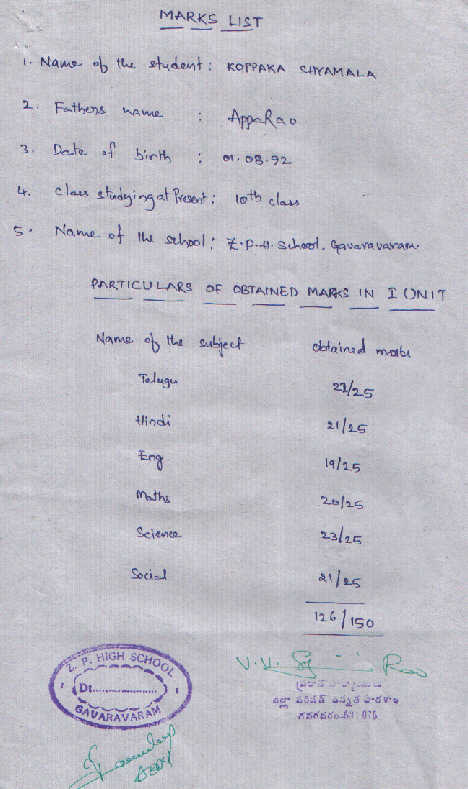 MARKS LIST
1. Name of the student : KOPPAKA SHYAMALA
2. Fathers name : AppaRao
3. Date of birth : 01.08.92
4. Class studying at Present : 10th class
5. Name of the school : Z.P.H. School, Gavaravaram.
PARTICULARS OF OBTAINED MARKS IN I UNIT
Name of the subject obtained marks
Telugu 22/25
Hindi 21/25
Eng 19/25
Maths 20/25
Science 23/25
Social 21/25
126/150
Z. P. HIGH SCHOOL
Dt..................
GAVARAVARAM
V.V. Rao
జిల్లా పరిషత్ ఉన్నత పాఠశాల